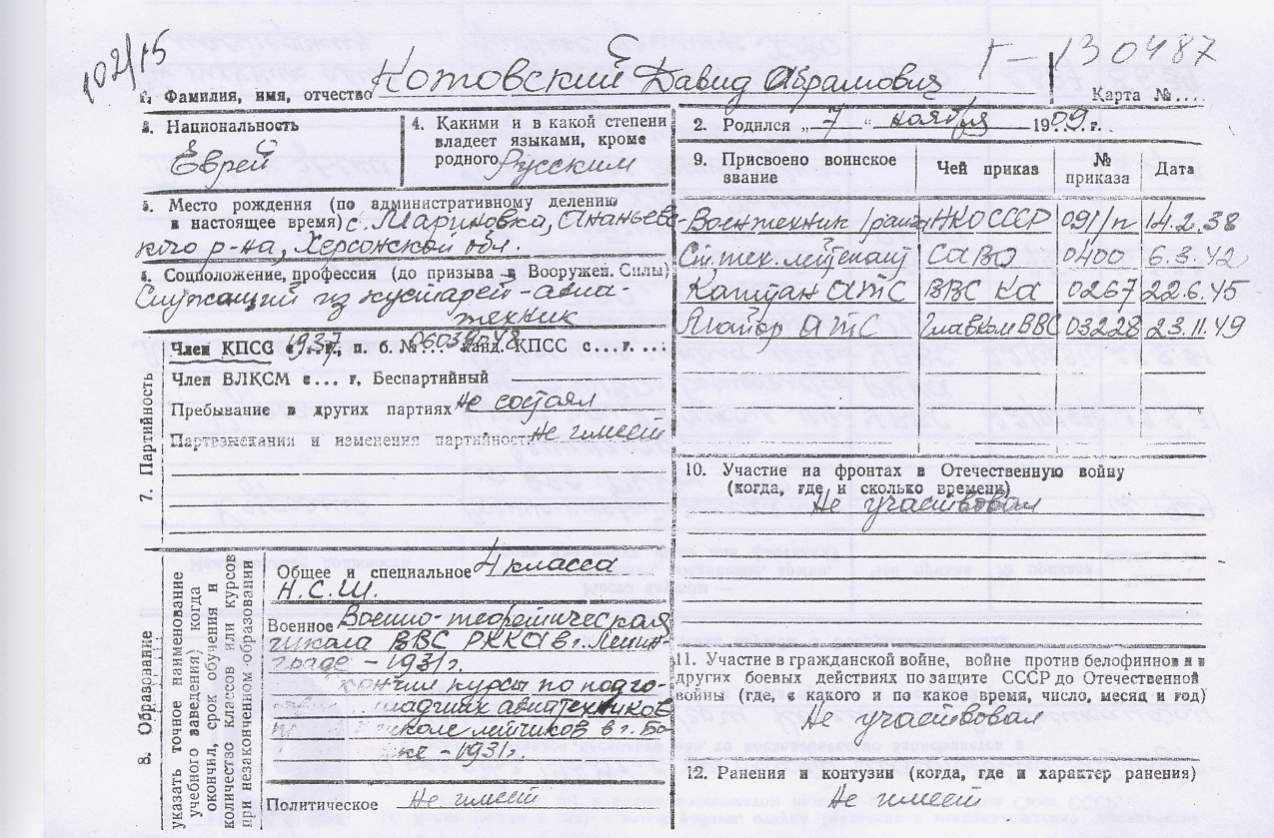 102/15
Г-130487
1. Фамилия, имя, отчество Котовский Давид Абрамович
Карта №...
3. Национальность
Еврей
4. Какими и в какой степени
владеет языками, кроме
родного Русским
2. Родился „ 7 “ ноября 1909 г.
5. Место рождения (по административному делению
в настоящее время) с. Мариновка, Ананьевс-
кого р-на, Херсонской обл.
6. Соцположение, профессия (до призыва в Вооружен. Силы)
Служащий из кустарей - авиа-
техник
9. Присвоено воинское
звание
Чей приказ
№
приказа
Дата
Воентехник 1 ранга НКО СССР 091/п 14.2.38
Ст. тех. лейтенант САВО 0400 6.3.42
Капитан АТС ВВС КА 0267 22.6.45
Майор АТС Главком ВВС 03228 23.11.49
7. Партийность
Член КПСС с 1937 г. п. б. № КПСС с... г. ...
Член ВЛКСМ с... г. Беспартийный
Пребывание в других партиях Не состоял
Партвзыскания и изменения партийности Не имеет
10. Участие на фронтах в Отечественную войну
(когда, где и сколько времени)
Не участвовал
8. Образование
указать точное наименование
учебного заведения) когда
окончил, срок обучения и
количество классов или курсов
при незаконченном образовании
Общее и специальное 4 класса
Н.С.Ш.
Военное Военно-теоретическая
школа ВВС РККА в г. Ленин-
граде - 1931 г.
кончил курсы по подго-
младших авиатехников
школе летчиков в г. Бо-
- 1931 г.
Политическое Не имеет
11. Участие в гражданской войне, войне против белофиннов и в
других боевых действиях по защите СССР до Отечественной
войны (где, с какого и по какое время, число, месяц и год)
Не участвовал
12. Ранения и контузии (когда, где и характер ранения)
Не имеет